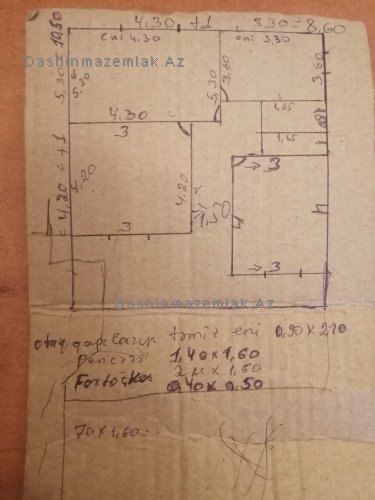 4.30 +1 3.30 = 8,60
eni 4.30 eni 3.30
Dashinmazemlak.Az
5,30 = 10,50
5.30
5,30
3,60
3,60
4,30
1,65
3
1,65
3
4,20 < +1
4,20
4.20
1,50
4
4
3
3
Dashinmazemlak.Az
otaq qapıların təmiz eni 0,90 x 210
Pəncərə 1,40 x 1,60
2 м x 1,60
Fortoçka 0,40 x 0,50
70 x 1,60 =